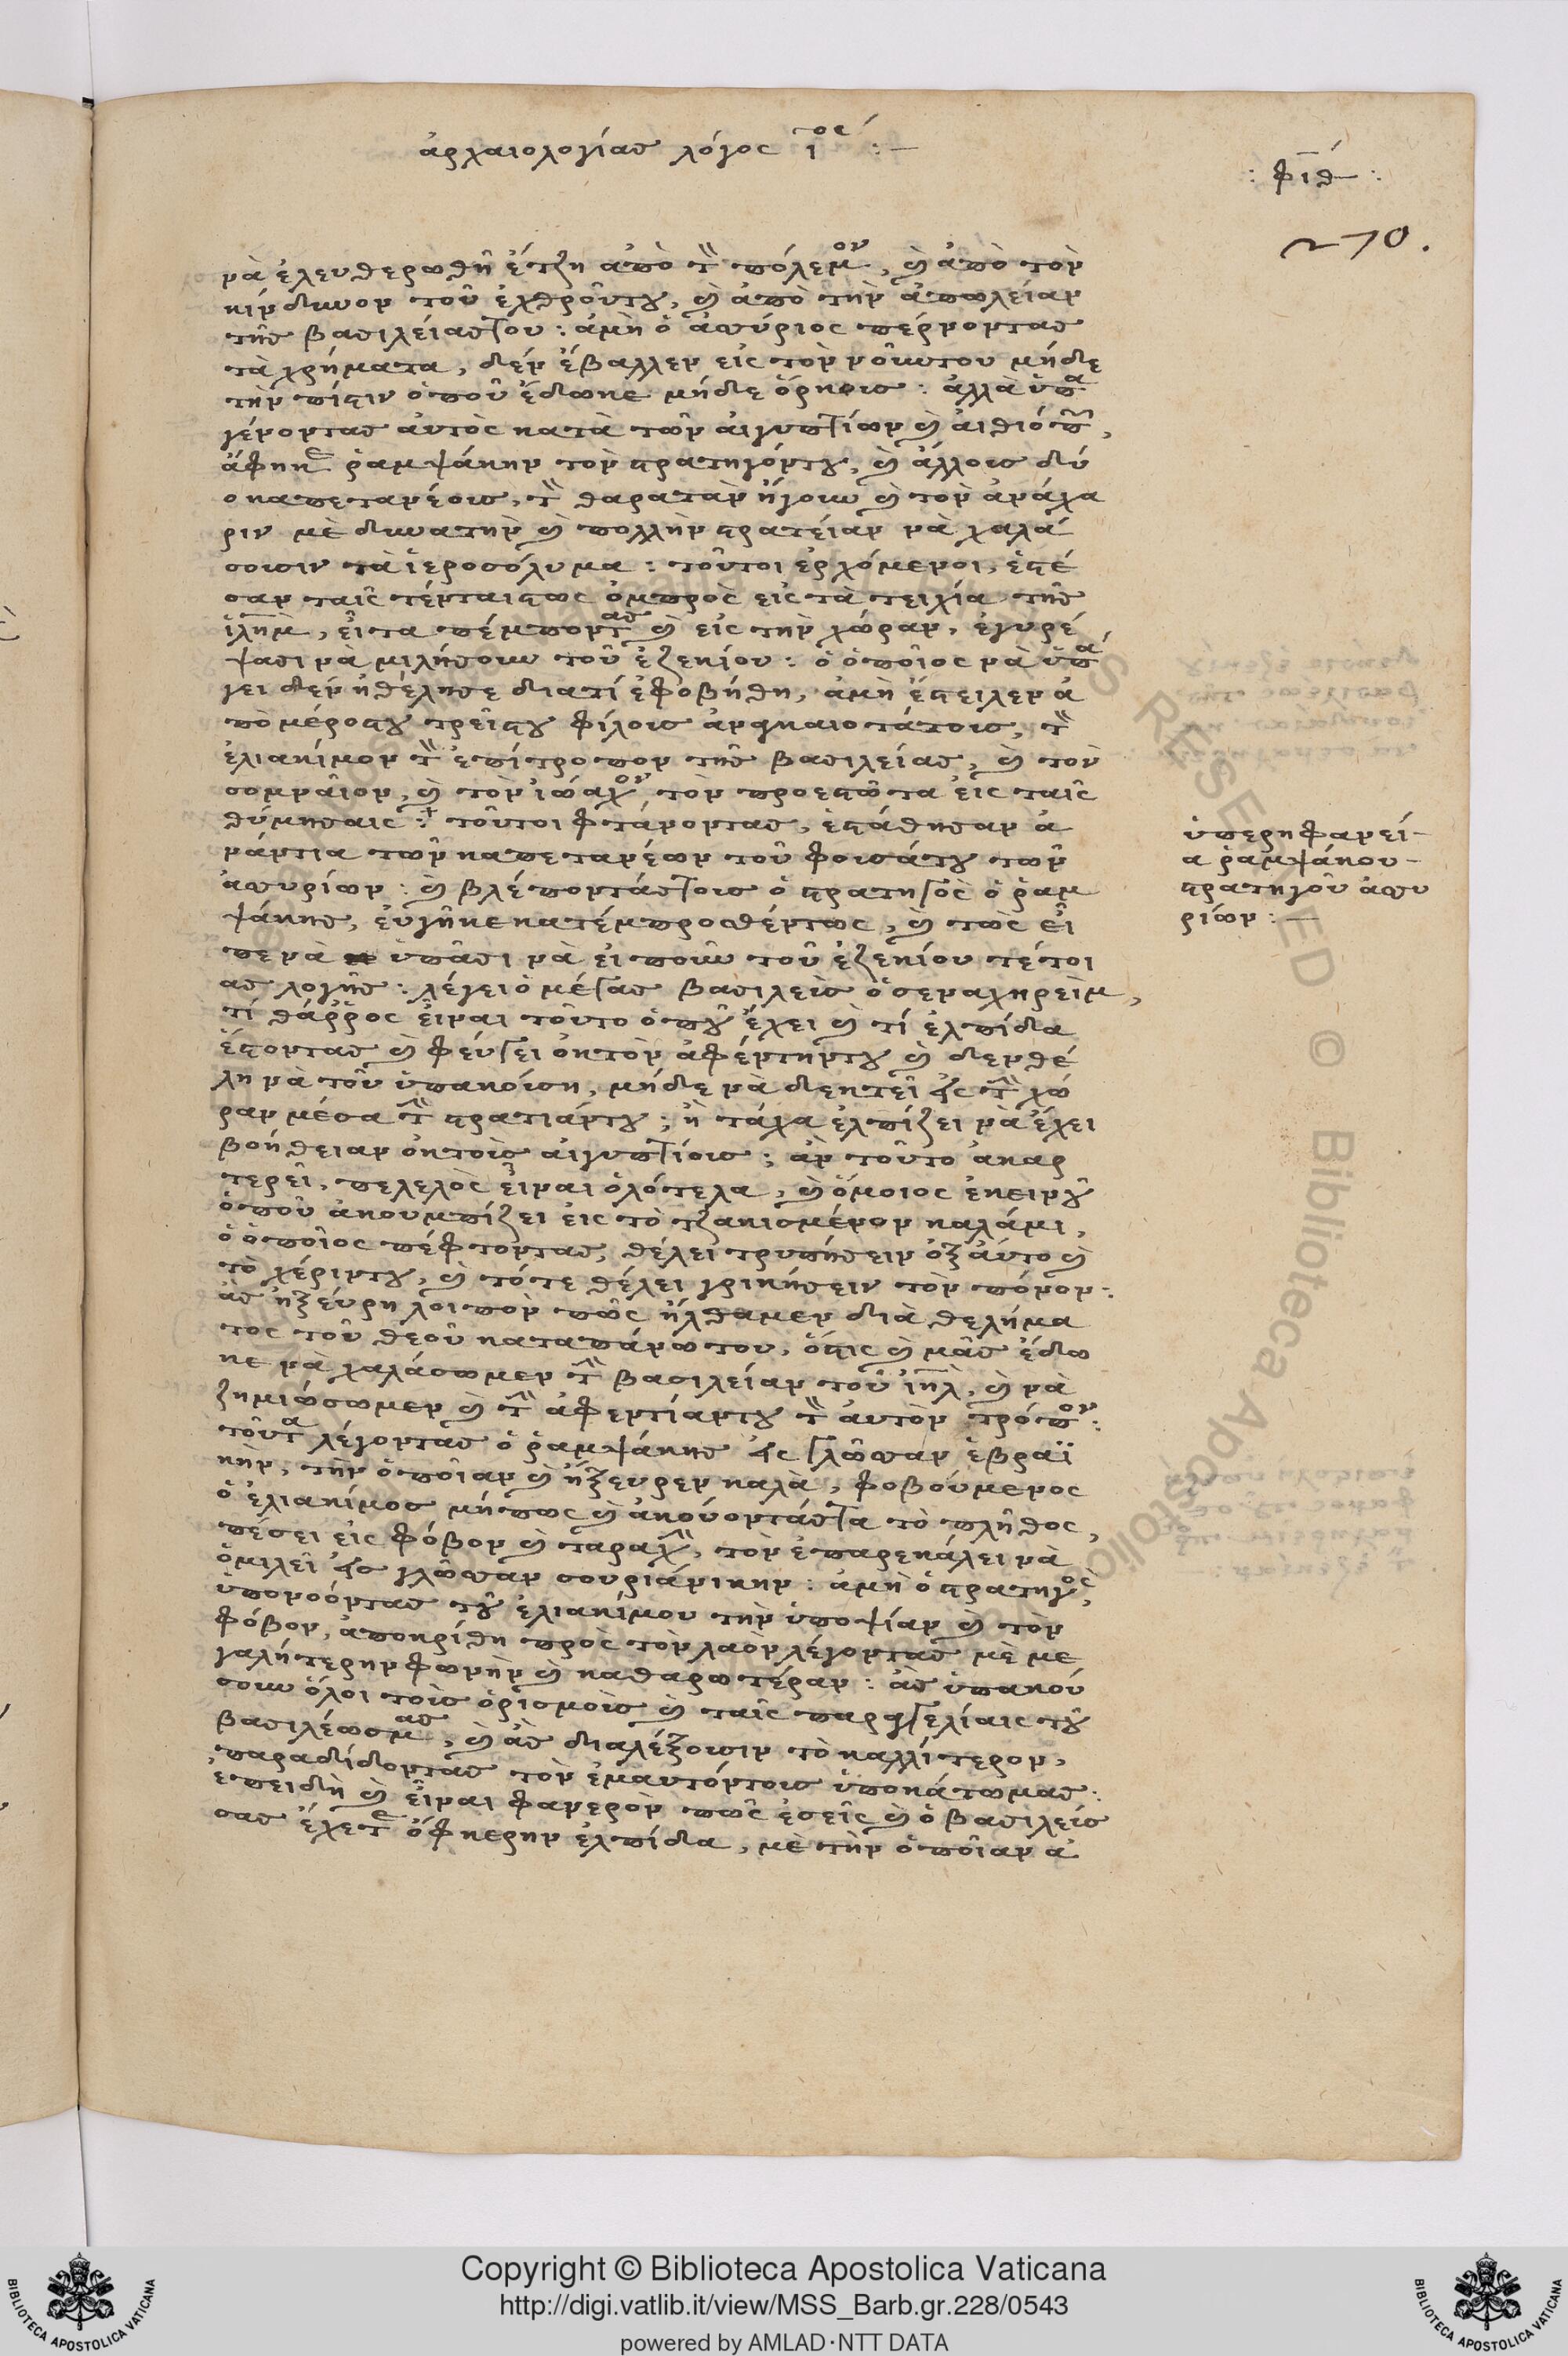 ἀρχαιολογίας λόγος ι^ος :—
: φιθ— :
270.
νὰ ἐλευθερωθῆ ἔτζη ἀπὸ τ̂ πόλεμ^ον, κ̀ ἀπὸ τὸν
κίνδυνον τοῦ ἐχθροῦντου, κ̀ ἀπὸ τὴν ἀπωλείαν
τῆς βασιλείαστου : ἀμὴ ὁ ἀσύριος πέρνοντας
τὰ χρήματα, δὲν ἔβαλλεν εἰς τὸν νοῦντου μήδε
τὴν πίστιν ὁποῦ ἔδωκε μήδε ὅρκοις : ἀλλὰ ὑπ^α
γένοντας αὐτὸς κατὰ τῶν αἰγυπτίων κ̀ αἰθιόπ̂,
ἄφηκ^ε ῥαμψάκην τὸν στρατηγόντου, κ̀ ἄλλοις δύ
ο καπετανέοις, τ̂ θαρατὰν ἤγουν κ̀ τὸν ἀνάχα
ριν μὲ δυνατὴν κ̀ πολλὴν στρατείαν νὰ χαλά
σουσιν τὰ ἱεροσόλυμα : τοῦτοι ἐρχόμενοι, ἐστέ
σαν ταῖς τένταιςτως ὀμπρὸς εἰς τὰ τειχία τῆς
ἱλημ̀, εἶτα πέμποντ^ας κ̀ εἰς τὴν χώραν, ἐγυρέ
ψασι νὰ μιλήσουν τοῦ ἐζεκίου : ὁ ὁποῖος νὰ ὑπ^ά
γει δὲν ἠθέλησε διατί ἐφοβήθη, ἀμὴ ἔστειλεν ἀ
πὸ μέροςτου τρεῖςτου φίλοις ἀνανκαιοτάτοις, τ̂
ἐλιακίμον τ̂ ἐπίτροπον τῆς βασιλείας, κ̀ τὸν
σομναῖον, κ̀ τὸν ἰώαχ^ον, τὸν προεστῶτα εἰς ταῖς
θύμησαις :+ τοῦτοι φτάνοντας, ἐστάθησαν ἀ
νάντια τῶν καπετανέων τοῦ φουσάτου τῶν
ἀσυρίων : κ̀ βλέποντάςτοις ὁ στρατηγὸς ὁ ῥαμ
ψάκης, εὐγῆκε κατέμπροσθέντως, κ̀ τὼς εἶ
πε νὰ ὑπᾶσι νὰ εἰποῦν τοῦ ἐζεκίου τέτοι
ας λογῆς : λέγει ὁ μέγας βασιλεὺς ὁ σεναχηρεὶμ,
τί θάῤῥος εἶναι τοῦτο ὁποῦ ἔχει κ̀ τί ἐλπίδα
ἔχοντας κ̀ φεύγει ὀκτὸν ἀφέντηντου κ̀ δενθέ
λη νὰ τοῦ ὑπακούση, μήδε νὰ δεκτεῖ εἰς τ̂ χώ
ραν μέσα τ̂ στρατιάντου ; ἢ τάχα ἐλπίζει νὰ ἔχει
βοήθειαν ὀκτοὺς αἰγυπτίους ; ἀν τοῦτο ἀκαρ
τερεῖ, πελελὸς εἶναι ὁλότελα, κ̀ ὅμοιος ἐκεινοῦ
ὁποῦ ἀκουμπίζει εἰς τὸ τζακισμένον καλάμι,
ὁ ὁποῖος πέφτοντας, θέλει τρυπήσειν ὀξαὔτο κ̀
τὸ χέριντου, κ̀ τότε θέλει γρικήσειν τὸν πόνον :
ἂς ἠξεύρη λοιπὸν πῶς ἤλθαμεν διὰ θελήμα
τος τοῦ θεοῦ καταπάνωτου, ὅστις κ̀ μᾶς ἔδω
κε νὰ χαλάσωμεν τ̂ βασιλείαν τοῦ ἰηλ̀, κ̀ νὰ
ζημιώσωμεν κ̀ τ̂ ἀφεντίαντου τ̂ αὐτὸν τρόπ^ον :
τοῦτ^α λέγοντας ὁ ῥαμψάκης εἰς γλῶσσαν ἑβραϊ
κὴν, τὴν ὁποῖαν κ̀ ἤξευρεν καλὰ, φοβούμενος
ὁ ἐλιακίμος μήπως κ̀ ἀκούοντάςτα τὸ πλῆθος,
πέσει εἰς φόβον κ̀ ταραχ̂, τὸν ἐπαρεκάλει νὰ
ὁμιλεῖ εἰς γλῶσσαν σουριάνικην : ἀμὴ ὁ στρατηγ^ὸς,
ὑπονοόντας τοῦ ἐλιακίμου τὴν ὑποψίαν κ̀ τὸν
φόβον, ἀποκρίθη πρὸς τὸν λαὸν λέγοντας μὲ με
γαλήτερην φωνὴν κ̀ καθαρωτέραν : ἂς ὑπακού
σουν ὅλοι τοὺς ὁρισμοὺς κ̀ ταῖς παραγγελίαις τοῦ
βασιλέωςμ^ας, κ̀ ἂς διαλέξουσιν τὸ καλλίτερον,
παραδίδοντας τὸν ἐμαυτόντοις ὑποκάτωμας :
ἐπειδὴ κ̀ εἶναι φανερὸν πῶς ἐσεῖς κ̀ ὁ βασιλεὺς
σας ἔχετ^ε ὄφκερην ἐλπίδα, μὲ τὴν ὁποῖαν ἀ
ὑπερηφανεί-
α ῥαμψάκου-
στρατηγοῦ ἀσσυ
ρίων :—
Copyright © Biblioteca Apostolica Vaticana
http://digi.vatlib.it/view/MSS_Barb.gr.228/0543
powered by AMLAD·NTT DATA
BIBLIOTECA APOSTOLICA VATICANA
BIBLIOTECA APOSTOLICA VATICANA